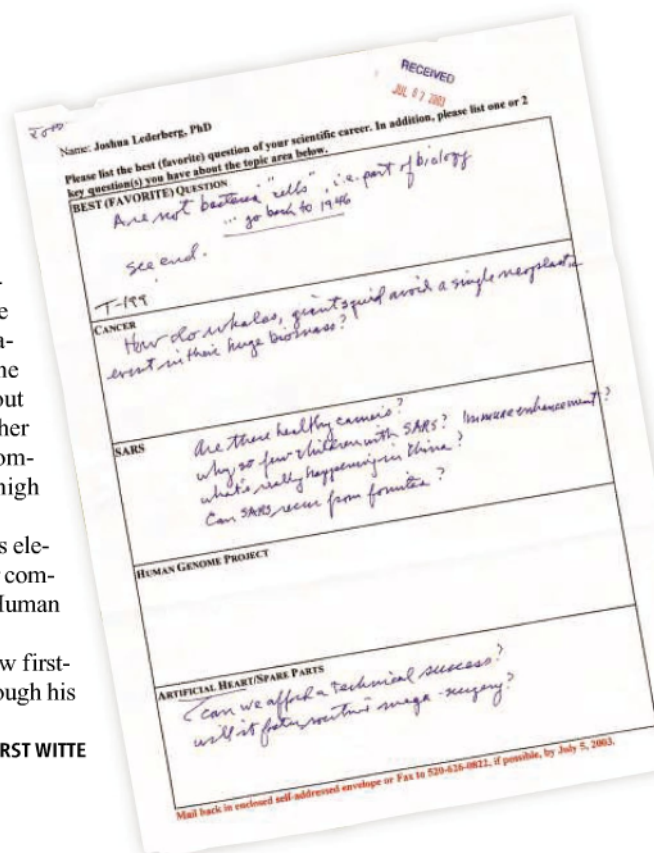 e
a-
ne
out
her
om-
high
s ele-
com-
Human
w first-
ough his
RST WITTE
RECEIVED
JUL 07 2003
Name: Joshua Lederberg, PhD
Please list the best (favorite) question of your scientific career. In addition, please list one or 2
key question(s) you have about the topic area below.
BEST (FAVORITE) QUESTION
Are not bacteria "cells", i.e. part of biology
... go back to 1946
see end.
T-199
CANCER
How do whales, giant squid avoid a single neoplastic
event in their huge biomass?
SARS
Are there healthy carriers?
why so few children with SARS? Immune enhancement?
what's really happening in China?
Can SARS recur from fomites?
HUMAN GENOME PROJECT
ARTIFICIAL HEART/SPARE PARTS
Can we afford a technical success?
will it foster routine mega-surgery?
Mail back in enclosed self-addressed envelope or Fax to 520-626-0822, if possible, by July 5, 2003.